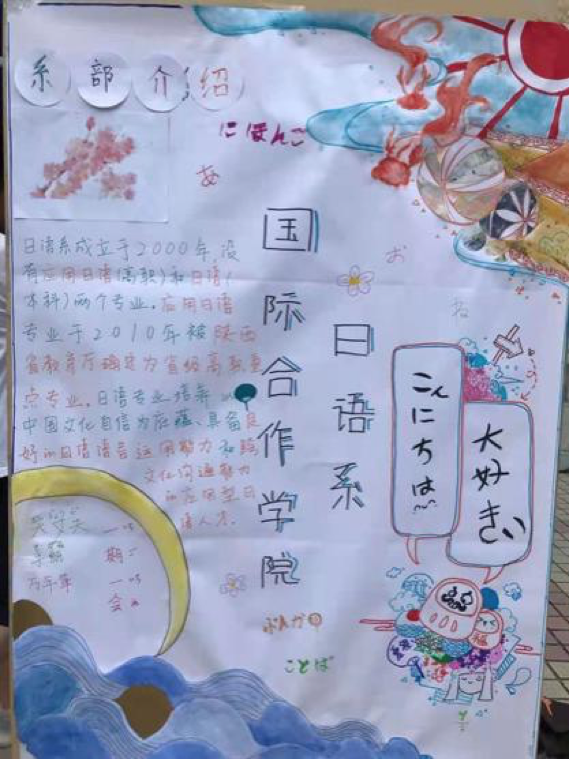 系部介绍
にほんご
あ
日语系成立于2000年,设
有应用日语(高职)和日语(
本科)两个专业,应用日语
专业于2010年被陕西
省教育厅确定为省级高职重
点专业。日语专业培养以
中国文化自信为底蕴、具备良
好的日语语言运用能力和跨
文化沟通能力
的应用型日
语人才。
一期一会
国际合作学院
日语系
お
ね
こんにちは~
大好きい
ぶんか
ことば